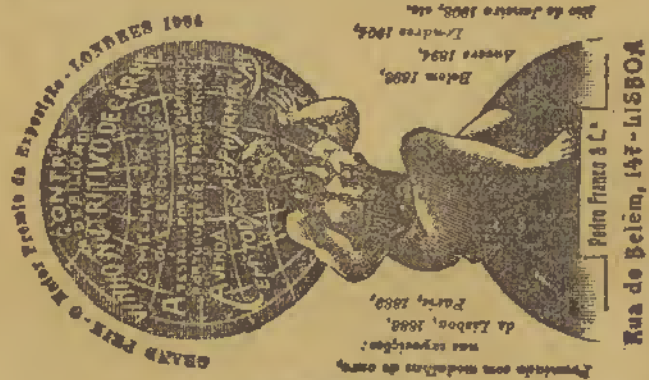 GRAND PRIX - O Maior Premio da Exposição - LONDRES 1904
CONTRA A
DEBILIDADE
VINHO NUTRITIVO DE CARNE
O MELHOR TONICO
QUE SE CONHECE
A' VENDA
EM TODAS AS PHARMACIAS
Premiado com medalhas de ouro,
nas exposições:
de Lisboa, 1888,
Paris, 1889,
Anvers 1894,
Londres 1904,
Rio de Janeiro 1908, etc.
Pedro Franco & C.ª
Rua de Belém, 147 - LISBOA